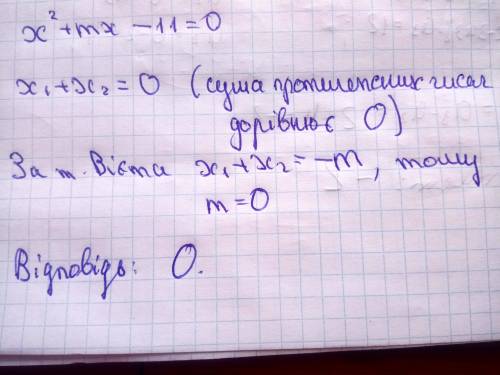 x² + mx - 11 = 0
x₁ + x₂ = 0 (сума протилежних чисел
дорівнює 0)
За т. Вієта x₁ + x₂ = -m, тому
m = 0
Відповідь: 0.